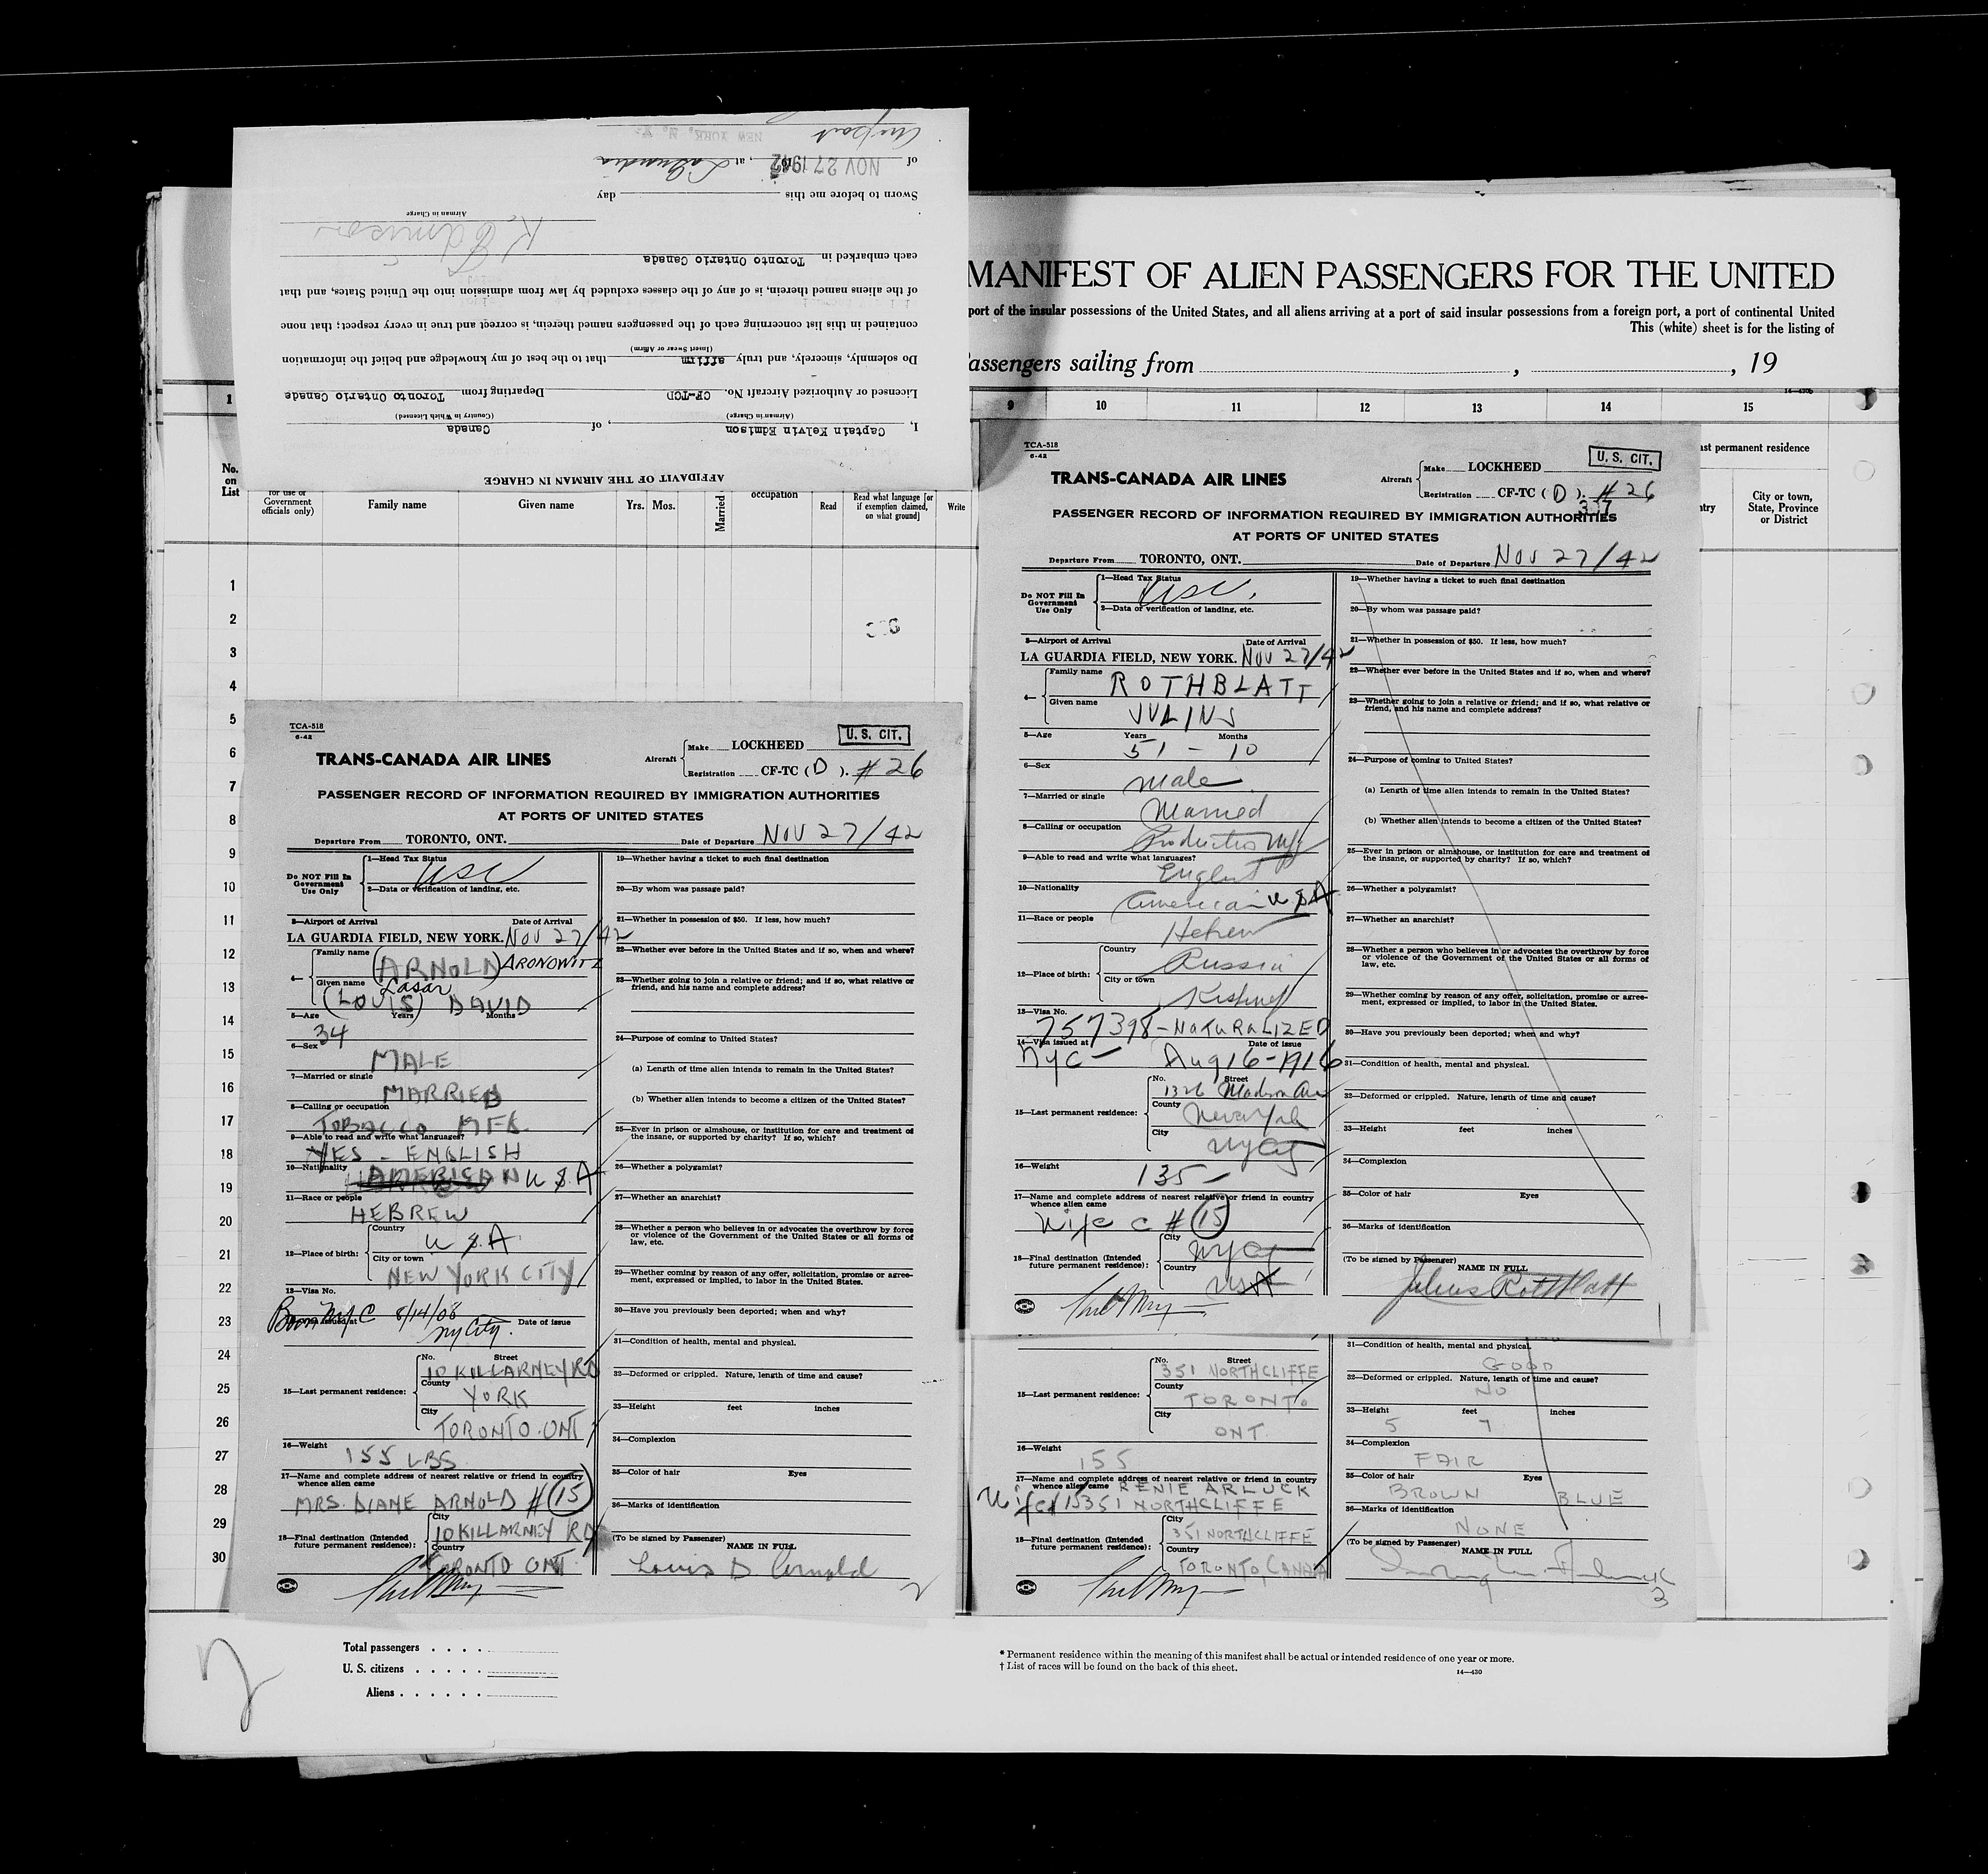 AFFIDAVIT OF THE AIRMAN IN CHARGE
I, Captain Kelvin Edmison, of Canada
(Airman in Charge) (Country in Which Licensed)
Licensed or Authorized Aircraft No. CF-TCD Departing from Toronto Ontario Canada
Do solemnly, sincerely, and truly affirm that to the best of my knowledge and belief the information
(Insert Swear or Affirm)
contained in this list concerning each of the passengers named therein, is correct and true in every respect; that none
of the aliens named therein, is of any of the classes excluded by law from admission into the United States, and that
each embarked in Toronto Ontario Canada
K Edmison
Airman in Charge
Sworn to before me this day
of NOV 27 1942, at LaGuardia
Airport NEW YORK, N. Y.
MANIFEST OF ALIEN PASSENGERS FOR THE UNITED
port of the insular possessions of the United States, and all aliens arriving at a port of said insular possessions from a foreign port, a port of continental United
This (white) sheet is for the listing of
assengers sailing from , , 19
14—430b
1 9 10 11 12 13 14 15
No. on List
for use of Government officials only)
Family name
Given name
Yrs. Mos.
Married
occupation
Read
Read what language [or if exemption claimed, on what ground]
Write
ast permanent residence
ntry
City or town, State, Province or District
1
2
3
4
5
6
7
8
9
10
11
12
13
14
15
16
17
18
19
20
21
22
23
24
25
26
27
28
29
30
TCA-518
6-42
U. S. CIT.
TRANS-CANADA AIR LINES
Aircraft Make LOCKHEED
Registration CF-TC (D). #26
PASSENGER RECORD OF INFORMATION REQUIRED BY IMMIGRATION AUTHORITIES
AT PORTS OF UNITED STATES
Departure From TORONTO, ONT. Date of Departure NOV 27/42
Do NOT Fill In Government Use Only
1—Head Tax Status USC
2—Data or verification of landing, etc.
3—Airport of Arrival Date of Arrival
LA GUARDIA FIELD, NEW YORK. NOV 27/42
4— Family name (ARNOLD) ARONOWITZ
Given name Lasar
(LOUIS) DAVID
5—Age Years Months
34
6—Sex MALE
7—Married or single MARRIED
8—Calling or occupation
TOBACCO MFR.
9—Able to read and write what languages?
YES - ENGLISH
10—Nationality AMERICAN U S A
11—Race or people
HEBREW
12—Place of birth: Country U.S.A
City or town
NEW YORK CITY
13—Visa No.
Born NYC 8/14/08
14—Visa issued at NYCity. Date of issue
15—Last permanent residence: No. Street
10 KILLARNEY RD
County YORK
City TORONTO. ONT
16—Weight 155 LBS
17—Name and complete address of nearest relative or friend in country whence alien came
MRS. DIANE ARNOLD # 15
18—Final destination (Intended future permanent residence): City
10 KILLARNEY RD
Country TORONTO ONT.
19—Whether having a ticket to such final destination
20—By whom was passage paid?
21—Whether in possession of $50. If less, how much?
22—Whether ever before in the United States and if so, when and where?
23—Whether going to join a relative or friend; and if so, what relative or friend, and his name and complete address?
24—Purpose of coming to United States?
(a) Length of time alien intends to remain in the United States?
(b) Whether alien intends to become a citizen of the United States?
25—Ever in prison or almshouse, or institution for care and treatment of the insane, or supported by charity? If so, which?
26—Whether a polygamist?
27—Whether an anarchist?
28—Whether a person who believes in or advocates the overthrow by force or violence of the Government of the United States or all forms of law, etc.
29—Whether coming by reason of any offer, solicitation, promise or agreement, expressed or implied, to labor in the United States.
30—Have you previously been deported; when and why?
31—Condition of health, mental and physical.
32—Deformed or crippled. Nature, length of time and cause?
33—Height feet inches
34—Complexion
35—Color of hair Eyes
36—Marks of identification
(To be signed by Passenger) NAME IN FULL
Louis D. Arnold
2
TCA-518
6-42
U. S. CIT.
TRANS-CANADA AIR LINES
Aircraft Make LOCKHEED
Registration CF-TC (D). #26
PASSENGER RECORD OF INFORMATION REQUIRED BY IMMIGRATION AUTHORITIES
AT PORTS OF UNITED STATES
Departure From TORONTO, ONT. Date of Departure NOV 27/42
Do NOT Fill In Government Use Only
1—Head Tax Status USC.
2—Data or verification of landing, etc.
3—Airport of Arrival Date of Arrival
LA GUARDIA FIELD, NEW YORK. NOV 27/42
4— Family name ROTHBLATT
Given name JULIUS
5—Age Years Months
51 - 10
6—Sex Male
7—Married or single Married
8—Calling or occupation
Production Mfg
9—Able to read and write what languages?
English
10—Nationality American U S A
11—Race or people
Hebrew
12—Place of birth: Country Russia
City or town
13—Visa No.
757398 - NATURALIZED
14—Visa issued at Date of issue
NYC - Aug 16-1916
15—Last permanent residence: No. Street
1326 Madison Ave
County New York
City NYCity
16—Weight 135
17—Name and complete address of nearest relative or friend in country whence alien came
Wife C # 15
18—Final destination (Intended future permanent residence): City NYCity
Country USA
19—Whether having a ticket to such final destination
20—By whom was passage paid?
21—Whether in possession of $50. If less, how much?
22—Whether ever before in the United States and if so, when and where?
23—Whether going to join a relative or friend; and if so, what relative or friend, and his name and complete address?
24—Purpose of coming to United States?
(a) Length of time alien intends to remain in the United States?
(b) Whether alien intends to become a citizen of the United States?
25—Ever in prison or almshouse, or institution for care and treatment of the insane, or supported by charity? If so, which?
26—Whether a polygamist?
27—Whether an anarchist?
28—Whether a person who believes in or advocates the overthrow by force or violence of the Government of the United States or all forms of law, etc.
29—Whether coming by reason of any offer, solicitation, promise or agreement, expressed or implied, to labor in the United States.
30—Have you previously been deported; when and why?
31—Condition of health, mental and physical.
32—Deformed or crippled. Nature, length of time and cause?
33—Height feet inches
34—Complexion
35—Color of hair Eyes
36—Marks of identification
(To be signed by Passenger) NAME IN FULL
Julius Rothblatt
15—Last permanent residence: No. Street
351 NORTHCLIFFE
County TORONTO
City ONT.
16—Weight 155
17—Name and complete address of nearest relative or friend in country whence alien came RENIE ARLUCK
Wife 15 351 NORTHCLIFFE
18—Final destination (Intended future permanent residence): City
351 NORTHCLIFFE
Country TORONTO, CANADA
31—Condition of health, mental and physical.
GOOD
32—Deformed or crippled. Nature, length of time and cause?
NO
33—Height feet inches
5 7
34—Complexion FAIR
35—Color of hair Eyes
BROWN BLUE
36—Marks of identification
NONE
(To be signed by Passenger) NAME IN FULL
3
Total passengers
U. S. citizens
Aliens
2
* Permanent residence within the meaning of this manifest shall be actual or intended residence of one year or more.
† List of races will be found on the back of this sheet.
14—430